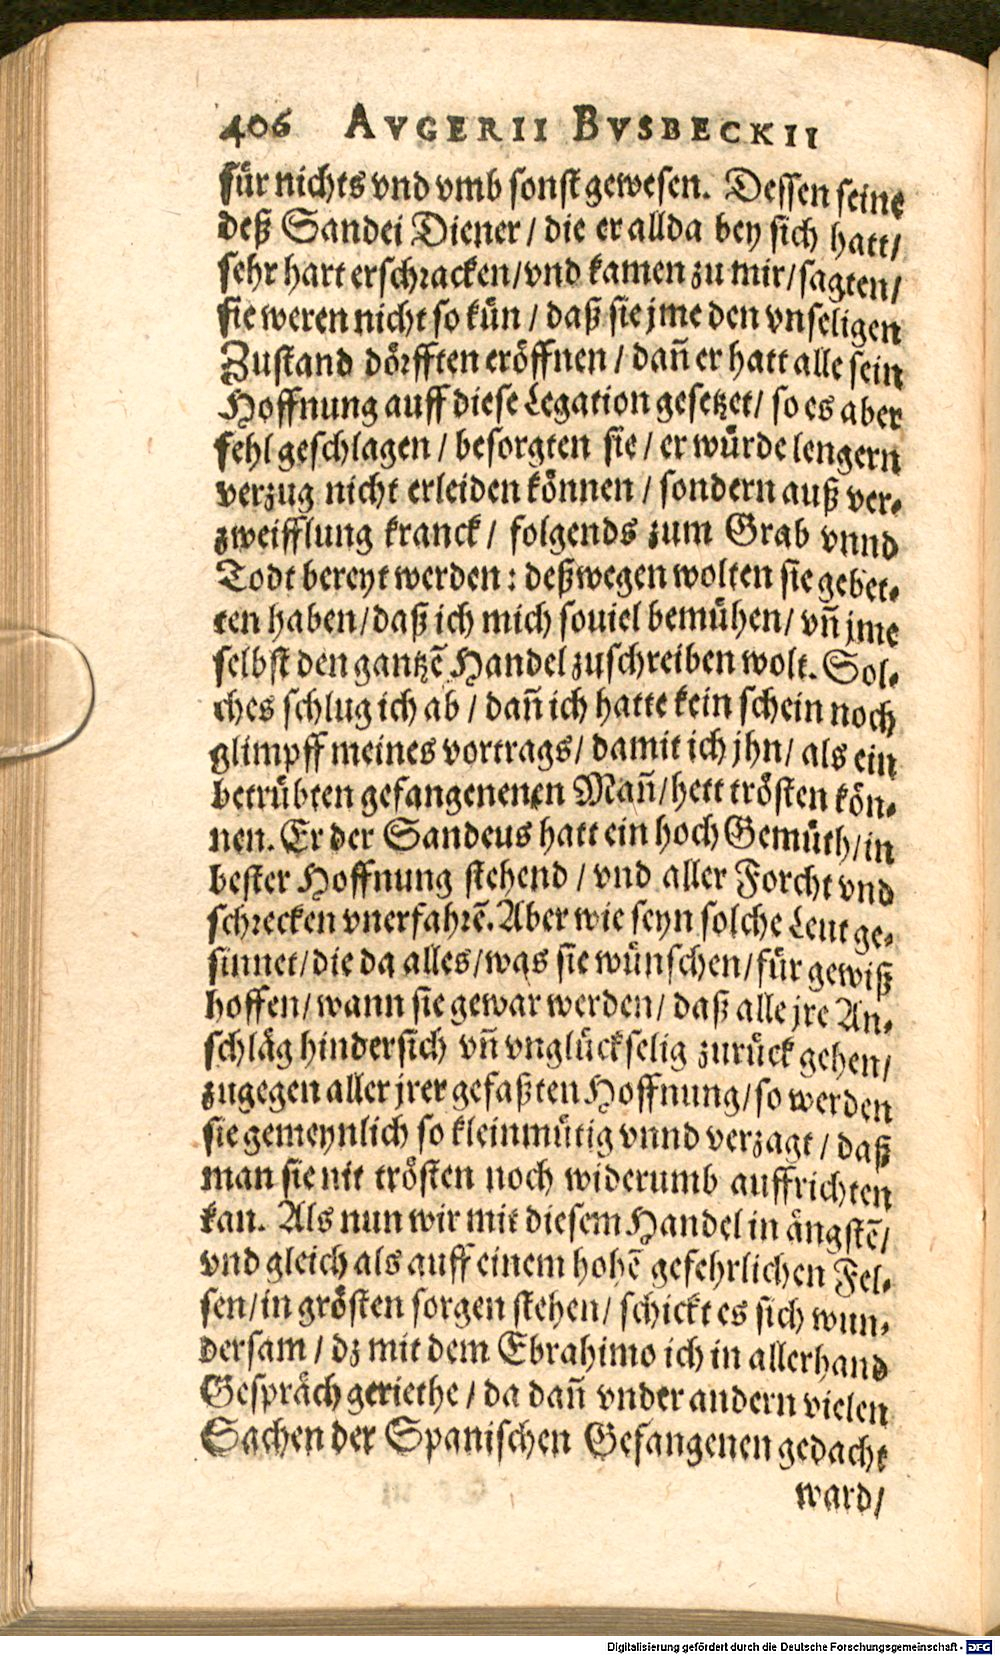 406 AVGERII BVSBECKII
für nichts vnd vmb sonst gewesen. Dessen seine
deß Sandei Diener / die er allda bey sich hatt /
sehr hart erschracken / vnd kamen zu mir / sagten /
sie weren nicht so kün / daß sie jme den vnseligen
Zustand dörfften eröffnen / dañ er hatt alle sein
Hoffnung auff diese Legation gesetzet / so es aber
fehl geschlagen / besorgten sie / er würde lengern
verzug nicht erleiden können / sondern auß ver-
zweifflung kranck / folgends zum Grab vnnd
Todt bereyt werden: deßwegen wolten sie gebet-
ten haben / daß ich mich souiel bemühen / vñ jme
selbst den gantzẽ Handel zuschreiben wolt. Sol-
ches schlug ich ab / dañ ich hatte kein schein noch
glimpff meines vortrags / damit ich jhn / als ein
betrübten gefangenenen Mañ / hett trösten kön-
nen. Er der Sandeus hatt ein hoch Gemüth / in
bester Hoffnung stehend / vnd aller Forcht vnd
schrecken vnerfahrẽ. Aber wie seyn solche Leut ge-
sinnet / die da alles / was sie wünschen / für gewiß
hoffen / wann sie gewar werden / daß alle jre An-
schläg hindersich vñ vnglückselig zurück gehen /
zugegen aller jrer gefaßten Hoffnung / so werden
sie gemeynlich so kleinmütig vnnd verzagt / daß
man sie nit trösten noch widerumb auffrichten
kan. Als nun wir mit diesem Handel in ängstẽ /
vnd gleich als auff einem hohẽ gefehrlichen Fel-
sen / in grösten sorgen stehen / schickt es sich wun-
dersam / dz mit dem Ebrahimo ich in allerhand
Gespräch geriethe / da dañ vnder andern vielen
Sachen der Spanischen Gefangenen gedacht
ward /
Digitalisierung gefördert durch die Deutsche Forschungsgemeinschaft - DFG